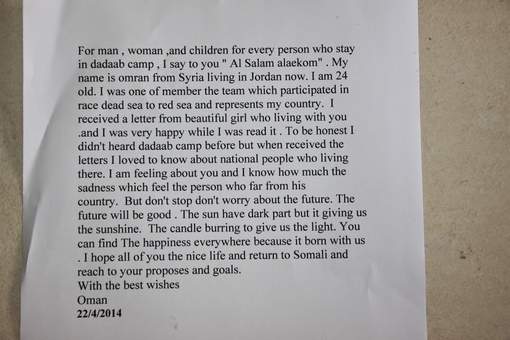 For man , woman ,and children for every person who stay
in dadaab camp , I say to you " Al Salam alaekom" . My
name is omran from Syria living in Jordan now. I am 24
old. I was one of member the team which participated in
race dead sea to red sea and represents my country.  I
received a letter from beautiful girl who living with you
.and I was very happy while I was read it . To be honest I
didn't heard dadaab camp before but when received the
letters I loved to know about national people who living
there. I am feeling about you and I know how much the
sadness which feel the person who far from his
country.  But don't stop don't worry about the future. The
future will be good . The sun have dark part but it giving us
the sunshine.  The candle burring to give us the light. You
can find The happiness everywhere because it born with us
. I hope all of you the nice life and return to Somali and
reach to your proposes and goals.
With the best wishes
Oman
22/4/2014